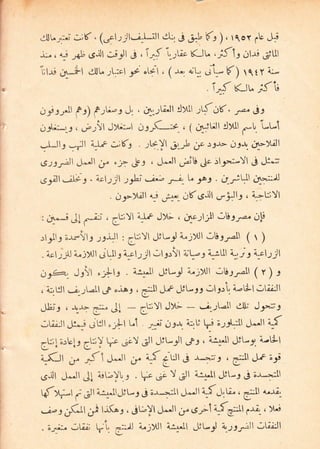 قبل عام ١٩٥٢ ، (وكما طبق فى بنك التسليف الزراعى) ، كانت تعتبر مالك
المائتى فدان وأكثر ، مالكا عقاريا كبيرا ، فى الوقت الذى ظهر فيه ، منذ
سنة ١٩٤٢ (كما سيأتى بيانه بعد) ، اتجاه نحو اعتبار مالك الخمسين فدانا
فأكثر مالكا كبيرا .
وفى مصر ، كان كبار الملاك العقاريين ، بل وصغارهم (وهم المعروفون
أساسا باسم الملاك الغائبين) ، يحتكرون استغلال الأرض ، ويستغلون
الفلاحين بدون حدود عن طريق الإيجار . وكانت عملية النهب والسلب
تتمثل فى الاستحواذ على فائض العمل ، وعلى جزء من العمل الضرورى
للمنتجين المباشرين . وهو ما يفسر ضعف تطور الزراعة ، وتخلف القوى
الانتاجية ، والبؤس الذى كان يعيش فيه الفلاحون .
فإن مصروفات المزارعين ، خلال عملية الانتاج ، تنقسم إلى قسمين :
( ١ ) المصروفات اللازمة لوسائل الانتاج : البذور والأسمدة والمواد
الزراعية وتربية الماشية وصيانة الأدوات الزراعية والمبانى اللازمة للزراعة .
و ( ٢ ) المصروفات اللازمة لوسائل المعيشة . والجزء الأول يكون
النفقات الخاصة بأدوات ووسائل عمل المنتج ، وهذه هى المصاريف الثابتة ،
وتتحول تلك المصاريف — خلال الانتاج — إلى منتج جديد ، وتظل
كمية العمل المتبلورة فيها ثابتة بدون تغيير . أما الجزء الثانى فيمثل النفقات
الخاصة بوسائل المعيشة ، وهى الوسائل التى لا غنى عنها لإنتاج وإعادة إنتاج
قوة عمل المنتج ، وتتجسد فى الناتج كمية من العمل أكبر من الكمية
المتجسدة فى وسائل المعيشة التى لا غنى عنها . وبالإضافة إلى العمل الذى
يقدمه المنتج ، مقابل كمية العمل المتجسدة فى وسائل المعيشة التى تم استهلاكها
فعلا ، يقدم المنتج كمية أخرى من العمل الإضافى ، وهكذا فمن الممكن وصف
النفقات الضرورية لوسائل المعيشة اللازمة للمنتج بأنها نفقات متغيرة .